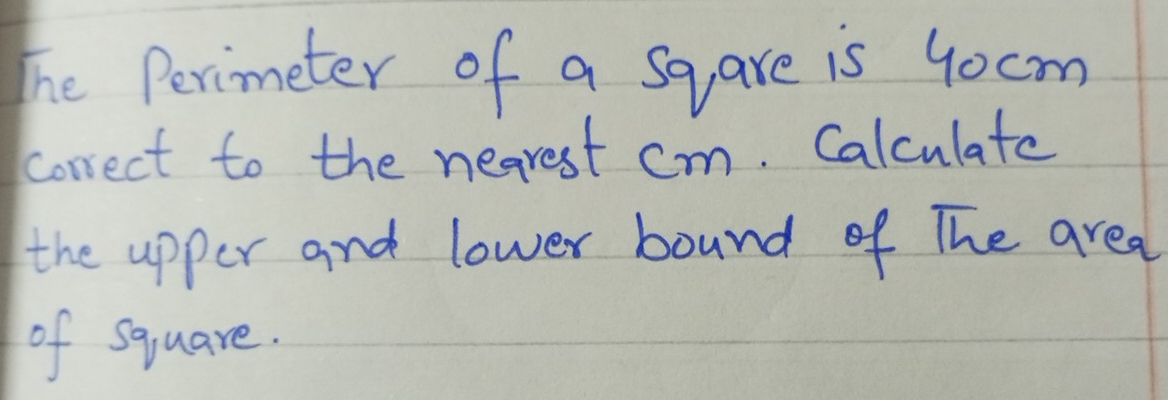 The Perimeter of a sqare is 40cm
correct to the nearest cm. Calculate
the upper and lower bound of The area
of square.